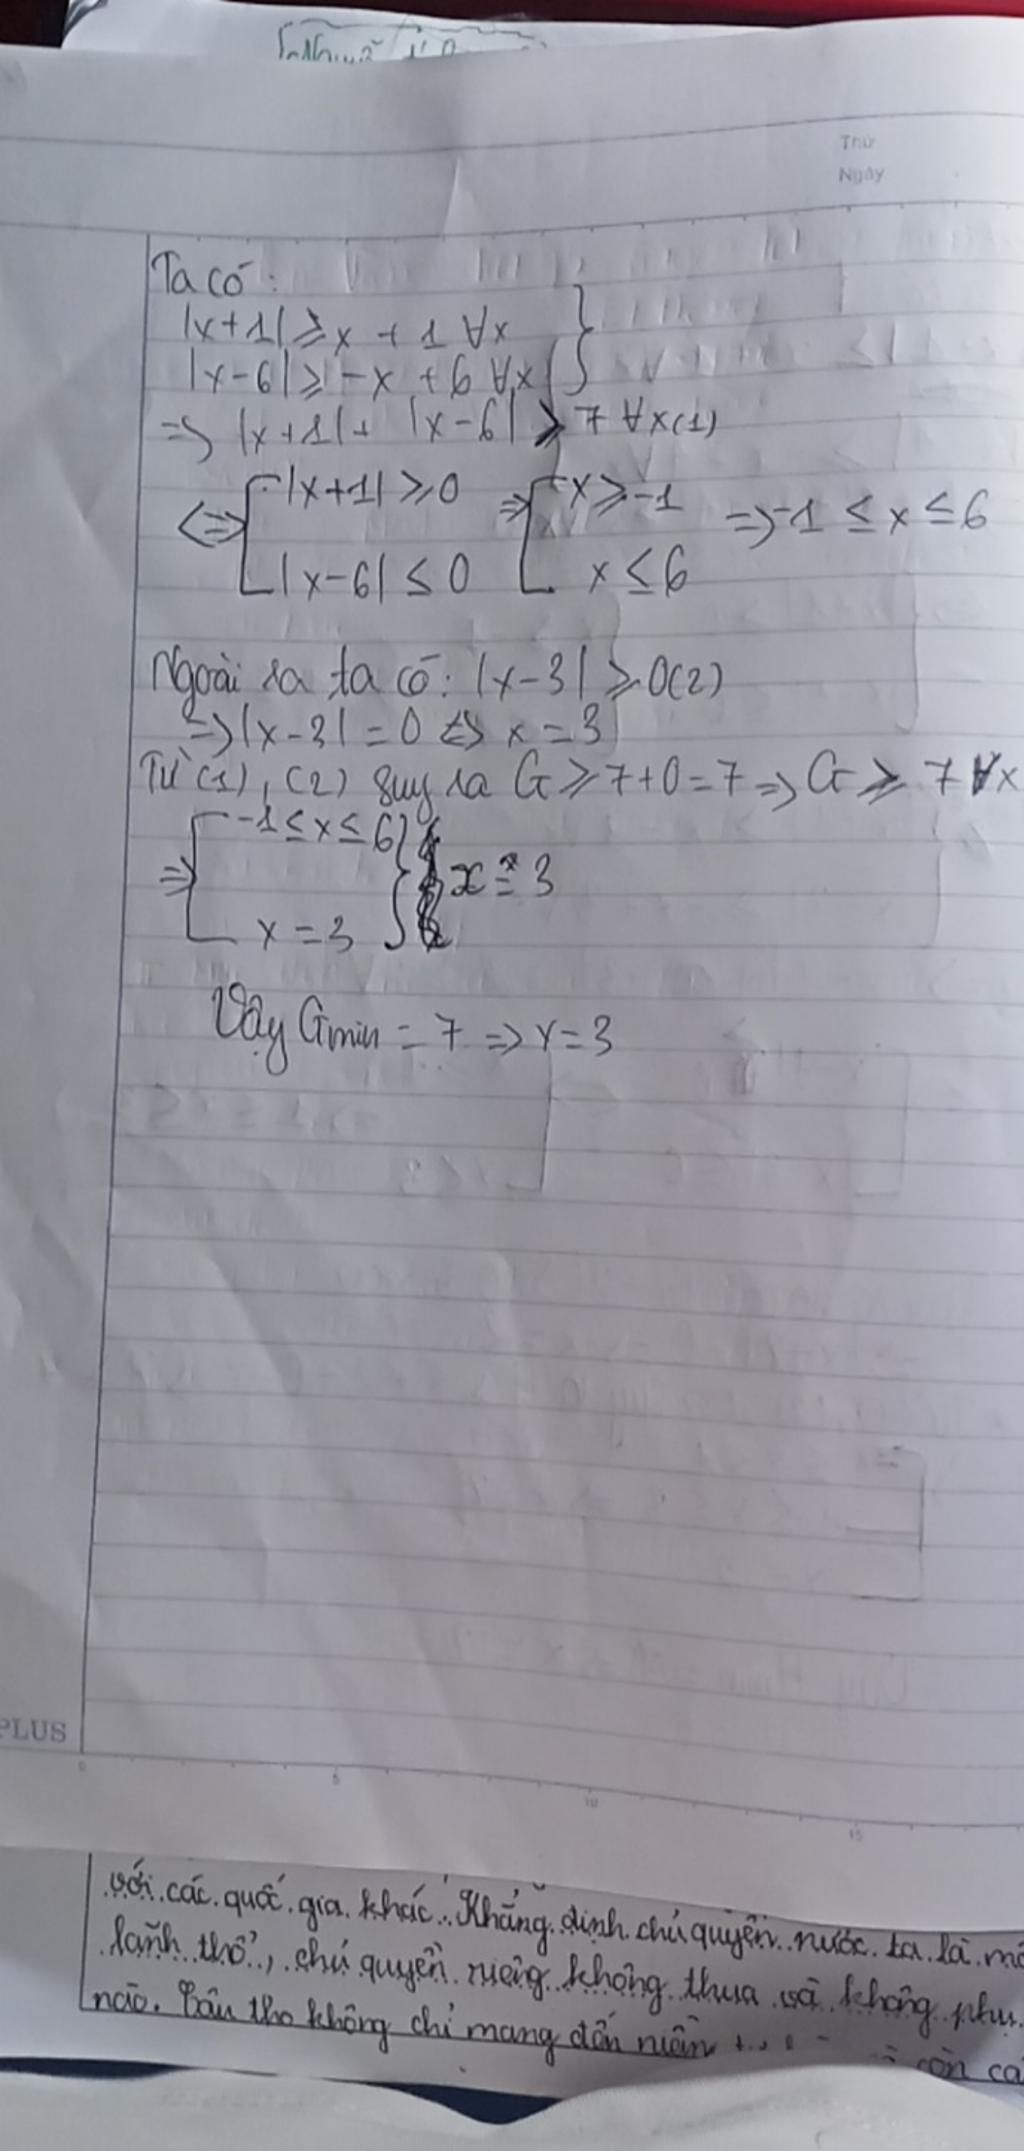 Thứ
Ngày
Ta có:
|x+1| ≥ x + 1 ∀x
|x-6| ≥ -x + 6 ∀x }
=> |x+1| + |x-6| ≥ 7 ∀x (1)
<=> [ |x+1| ≥ 0 => [ x ≥ -1 => -1 ≤ x ≤ 6
|x-6| ≤ 0 x ≤ 6
Ngoài ra ta có: |x-3| ≥ 0 (2)
=> |x-3| = 0 <=> x = 3
Từ (1), (2) suy ra G ≥ 7+0=7 => G ≥ 7 ∀x
=> [ -1 ≤ x ≤ 6 } x = 3
x = 3
Vậy Gmin = 7 => x = 3
PLUS
0 5 10 15
với các quốc gia khác. Khẳng định chủ quyền nước ta là
lãnh thổ, chủ quyền riêng không thua và không phụ
nào. Bài thơ không chỉ mang đến còn